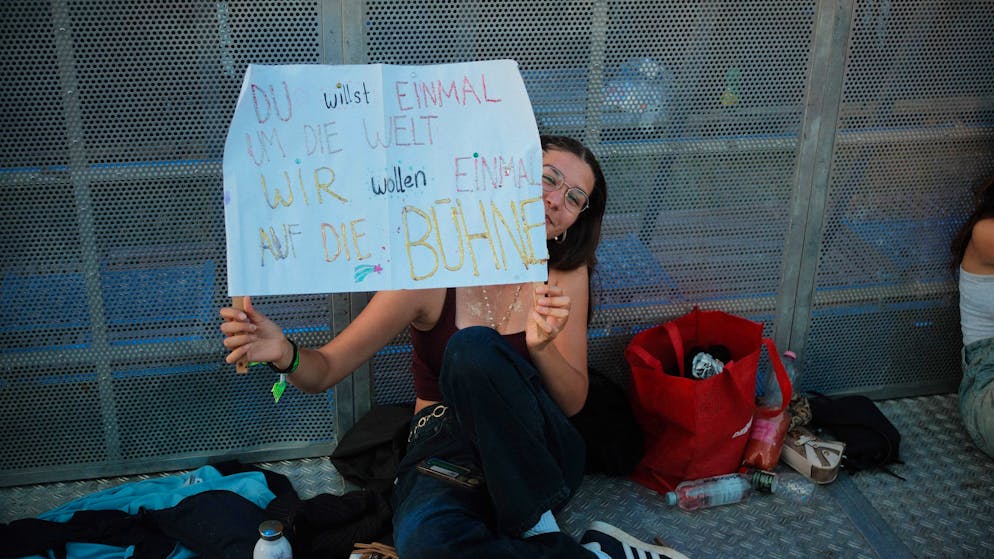 DU willst EINMAL
UM DIE WELT
WIR wollen EINMAL
AUF DIE BÜHNE